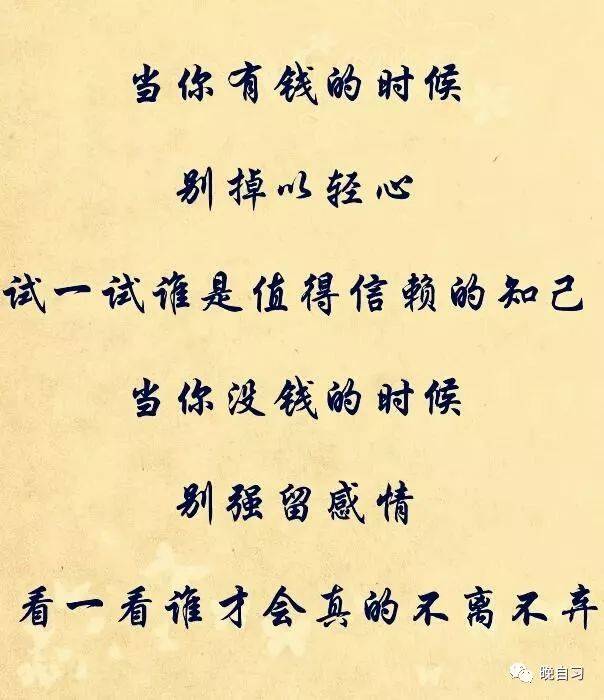 当你有钱的时候
别掉以轻心
试一试谁是值得信赖的知己
当你没钱的时候
别强留感情
看一看谁才会真的不离不弃
晚自习